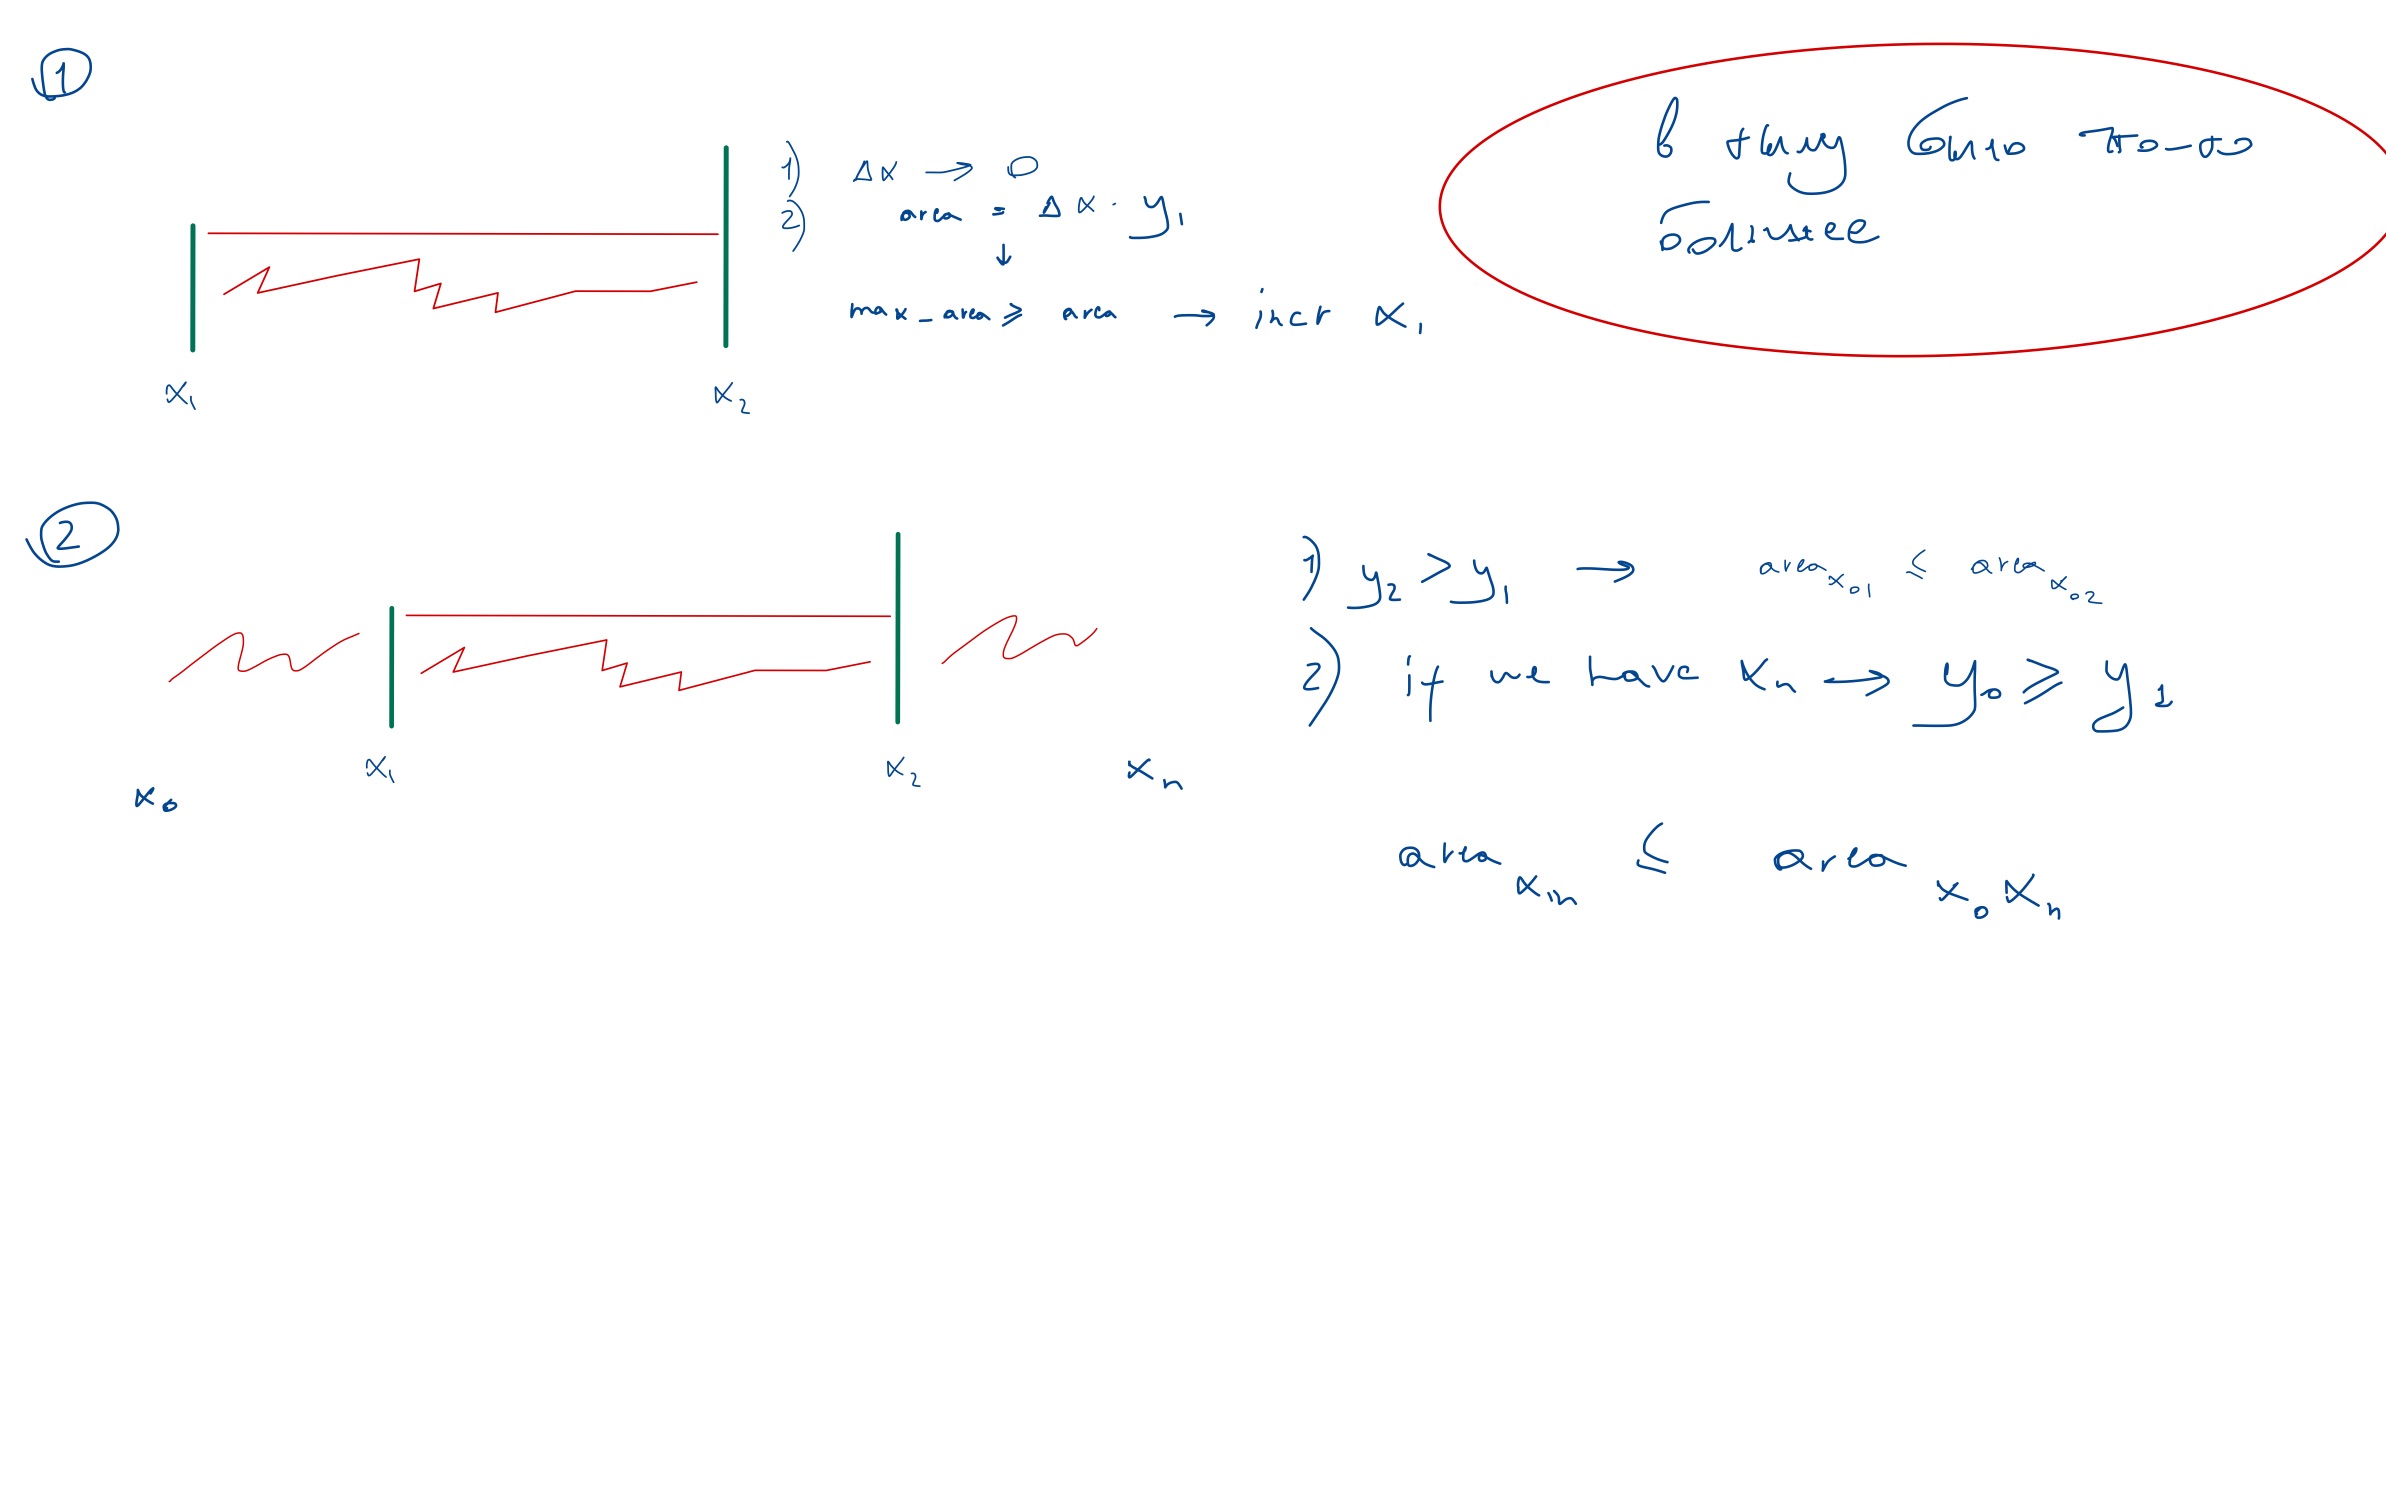 1
1) Δx → 0
2) area = Δx · y₁
↓
max_area ≥ area → incr x₁
x₁ x₂
было
большее
2
1) y₂ > y₁ → area x₀₁ ≤ area x₀₂
2) if we have xₙ → y₀ ≥ y₁
x₀ x₁ x₂ xₙ
area x₁ₙ ≤ area x₀xₙ